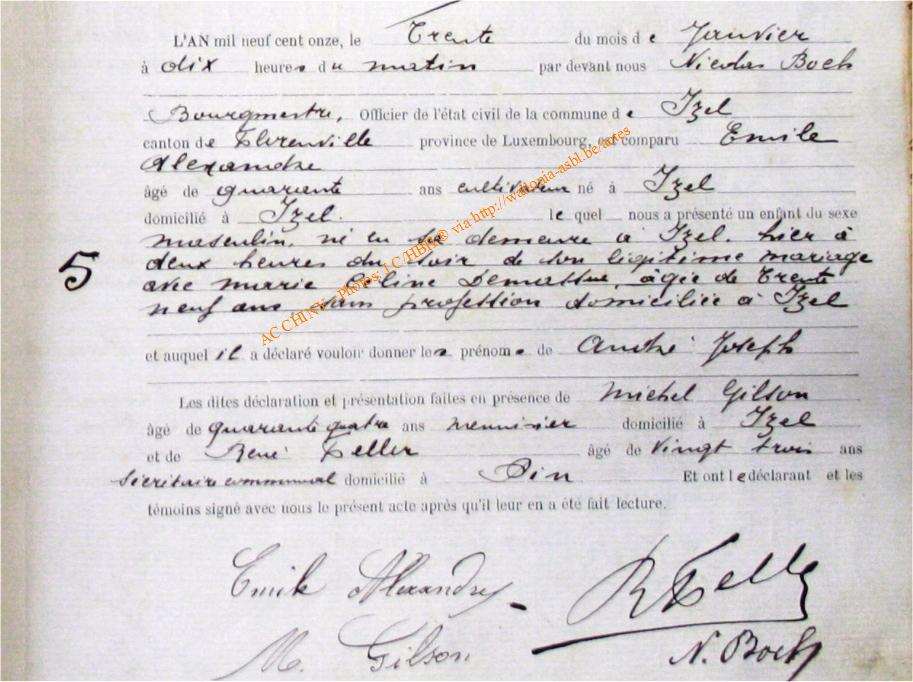 L'AN mil neuf cent onze, le Trente du mois de Janvier
à dix heures du matin par devant nous Nicolas Boch
Bourgmestre, Officier de l'état civil de la commune de Izel
canton de Florenville province de Luxembourg, est comparu Emile
Alexandre
âgé de quarante ans cultivateur né à Izel
domicilié à Izel. lequel nous a présenté un enfant du sexe
masculin, né en sa demeure à Izel, hier à
deux heures du soir de son légitime mariage
avec marie Céline, âgée de Trente
neuf ans sans profession domiciliée à Izel
5
et auquel il a déclaré vouloir donner les prénoms de André Joseph
Les dites déclaration et présentation faites en présence de Michel Gilson
âgé de quarante quatre ans menuisier domicilié à Izel
et de René Feller âgé de vingt trois ans
Sécrétaire communal domicilié à Pin Et ont le déclarant et les
témoins signé avec nous le présent acte après qu'il leur en a été fait lecture.
Emile Alexandre
R Feller
M. Gilson
N. Boch
AC CHINY - Photos LC IHBR® via http://wallonia-asbl.be/actes